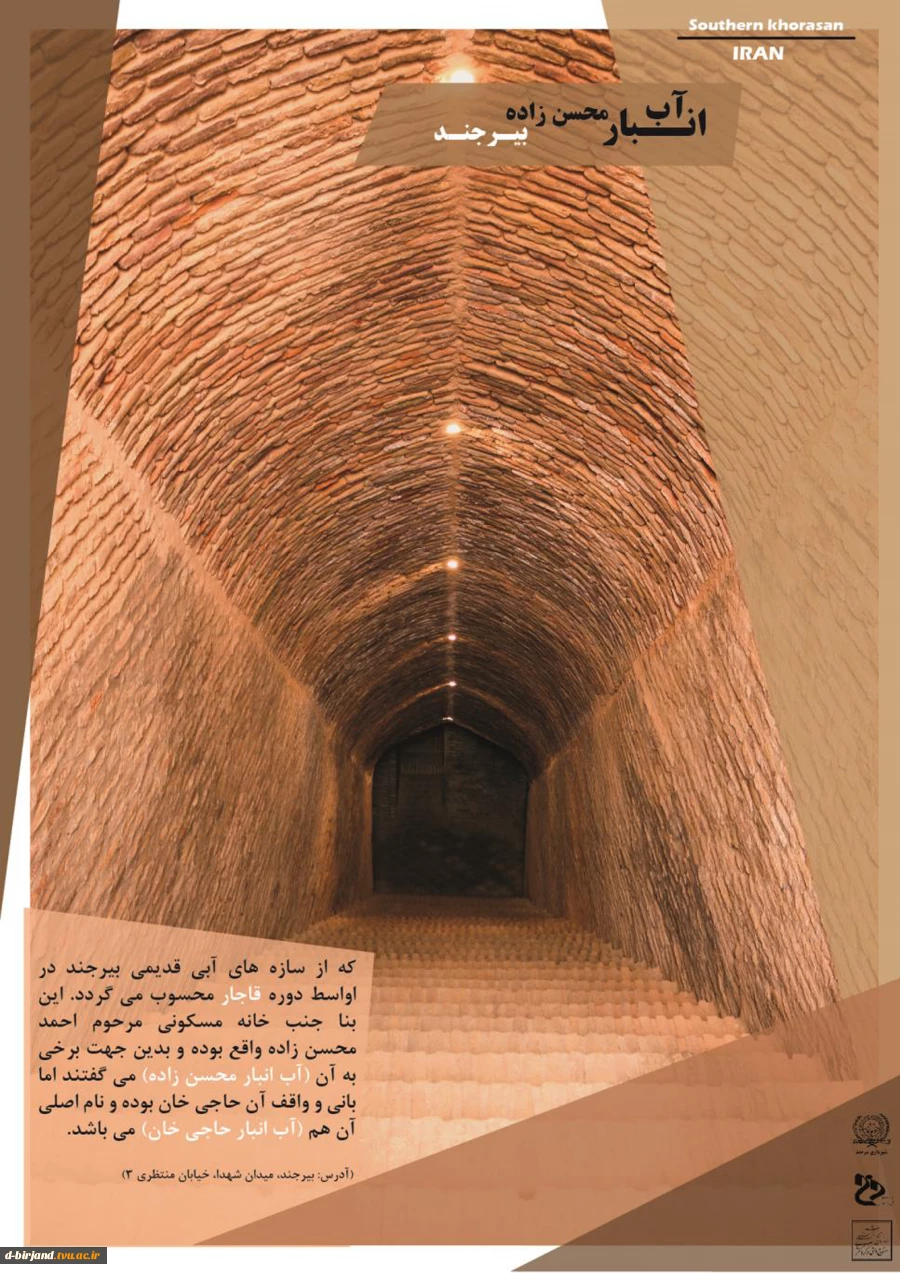 Southern khorasan
IRAN
آب انبار محسن زاده
بیرجند
که از سازه های آبی قدیمی بیرجند در
اواسط دوره قاجار محسوب می گردد. این
بنا جنب خانه مسکونی مرحوم احمد
محسن زاده واقع بوده و بدین جهت برخی
به آن (آب انبار محسن زاده) می گفتند اما
بانی و واقف آن حاجی خان بوده و نام اصلی
آن هم (آب انبار حاجی خان) می باشد.
(آدرس: بیرجند، میدان شهدا، خیابان منتظری ۳)
شهرداری بیرجند
d-birjand.tvu.ac.ir